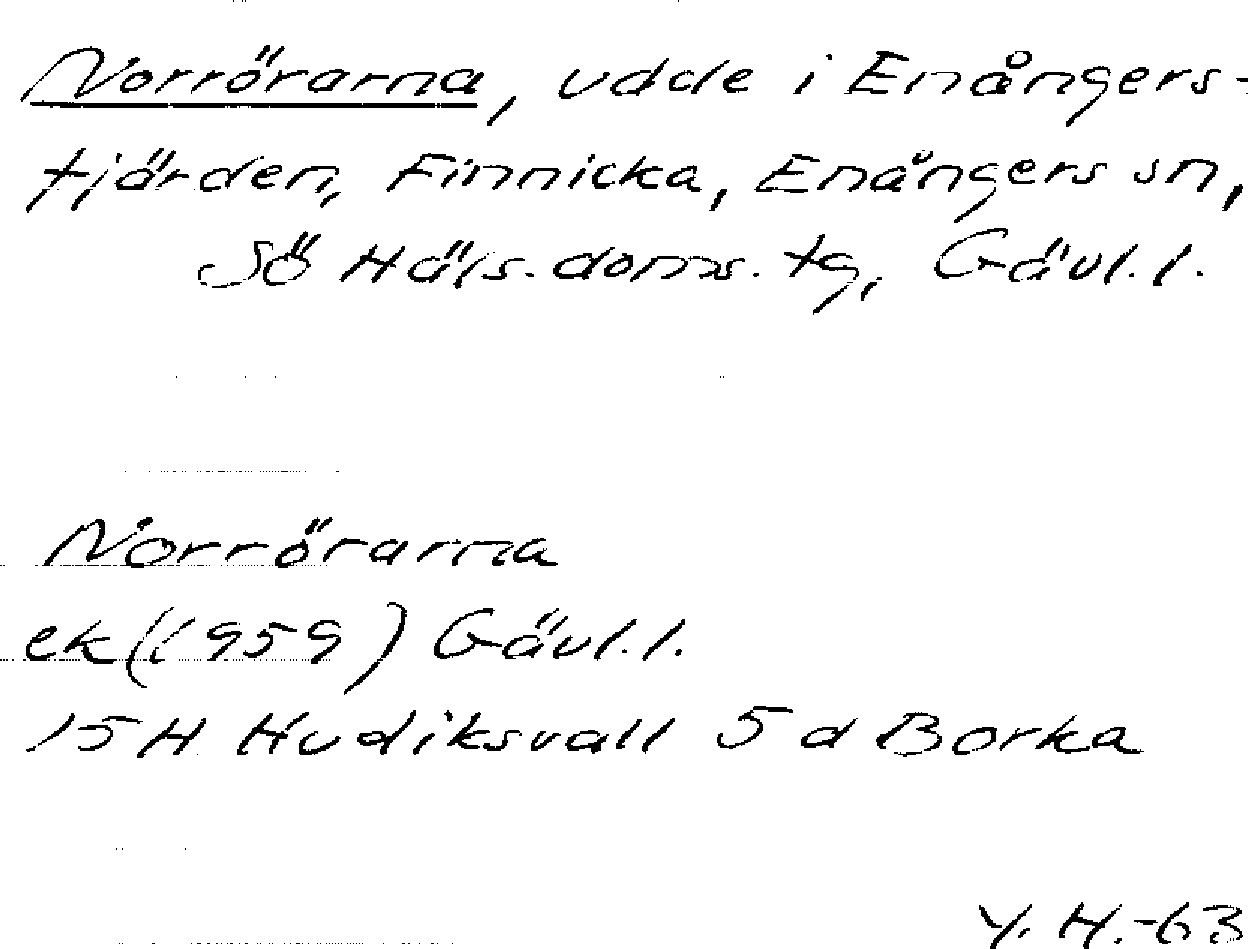 Norrörarna, udde i Enångers-
fjärden, Finnicka, Enångers sn,
Sö Häls. doms. tg, Gävl. l.
Norrörarna
ek (1959) Gävl. l.
15 H Hudiksvall 5 d Borka
Y. H.-63